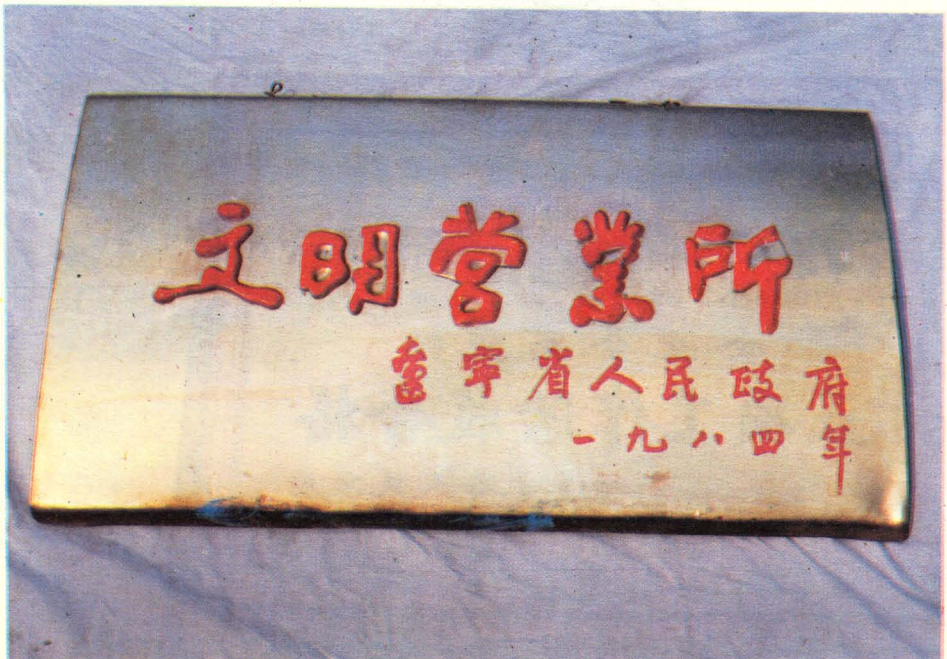 文明营業所
遼寧省人民政府
一九八四年